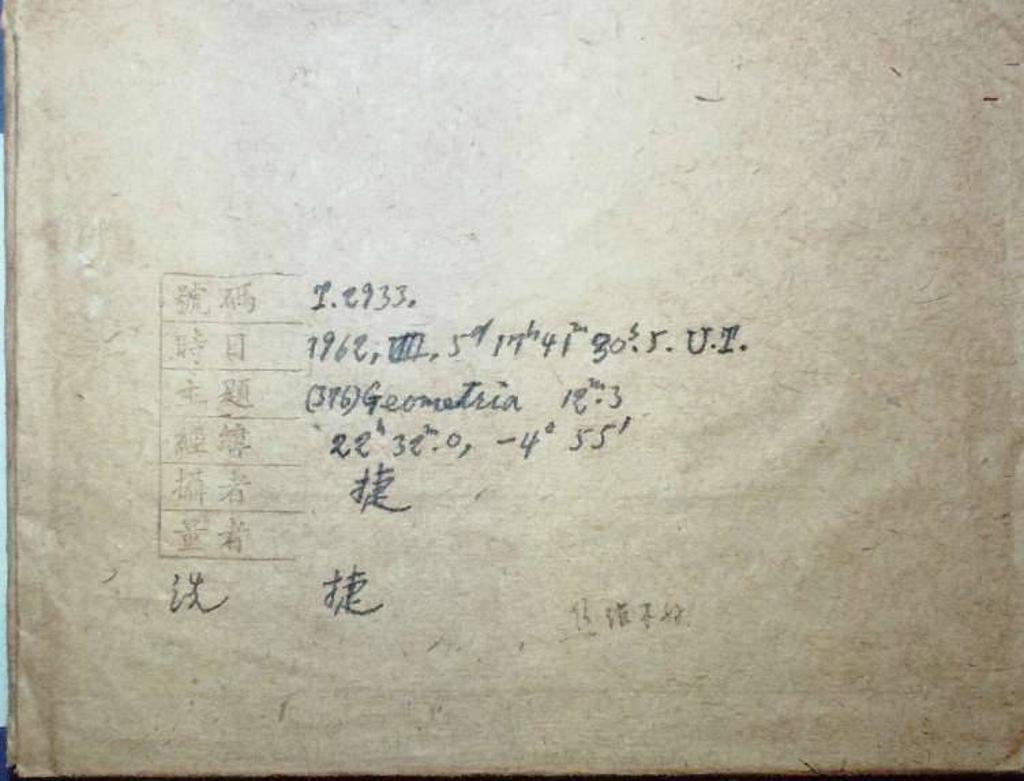 號碼 I.2933.
時日 1962, VIII, 5ᵈ 17ʰ 41ᵐ 30ˢ.5. U.T.
主題 (376) Geometria 12ᵐ.3
經緯 22ʰ 32ᵐ.0, -4° 55′
攝者 捷
量者
洗 捷